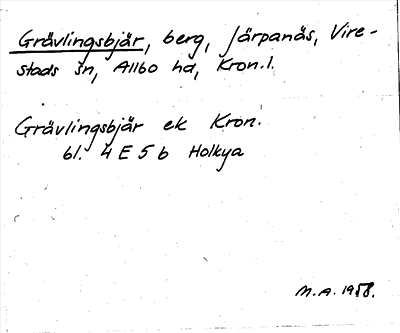 Grävlingsbjär, berg, Järpanäs, Vire-
stads sn, Allbo hd, Kron.l.
Grävlingsbjär ek Kron.
bl. 4 E 5 b Holkya
M.A. 1958.